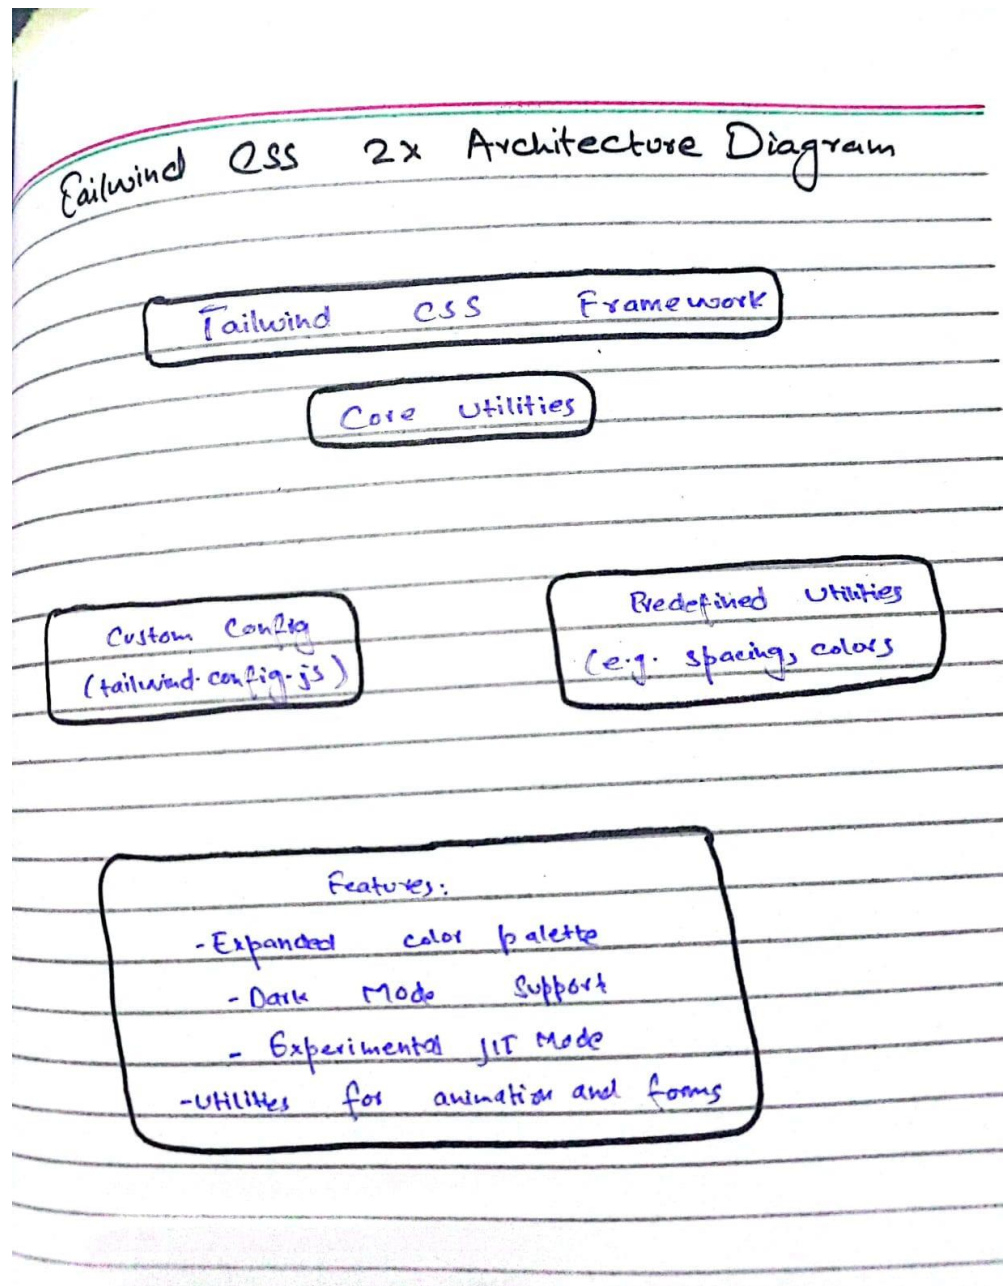 Tailwind CSS 2x Architecture Diagram
Tailwind CSS Framework
Core Utilities
Custom Config
(tailwind.config.js)
Predefined Utilities
(e.g. spacing, colors
Features:
- Expanded color palette
- Dark Mode Support
- Experimental JIT Mode
- Utilities for animation and forms